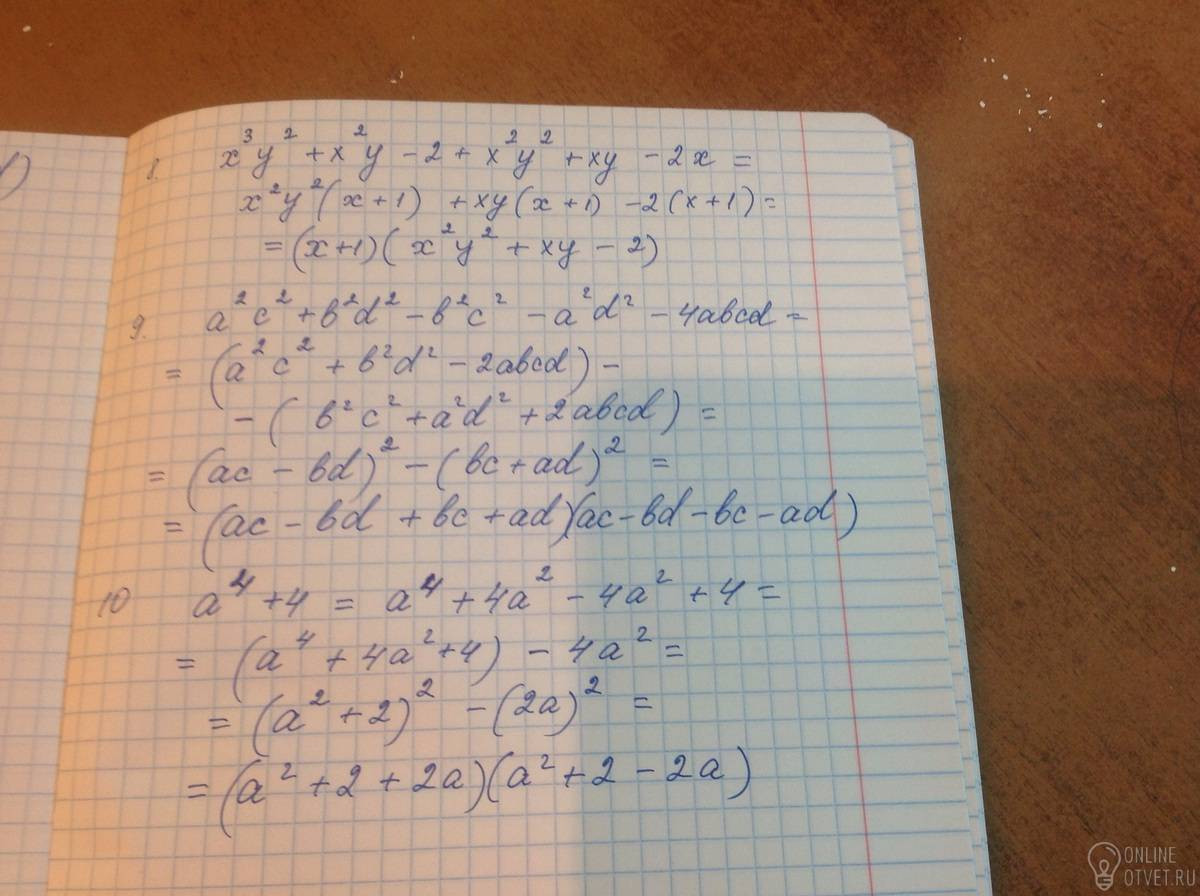 )
8. x³y² + x²y - 2 + x²y² + xy - 2x =
x²y²(x+1) + xy(x+1) - 2(x+1) =
= (x+1)(x²y² + xy - 2)
9. a²c² + b²d² - b²c² - a²d² - 4abcd =
= (a²c² + b²d² - 2abcd) -
- (b²c² + a²d² + 2abcd) =
= (ac - bd)² - (bc + ad)² =
= (ac - bd + bc + ad)(ac - bd - bc - ad)
10 a⁴ + 4 = a⁴ + 4a² - 4a² + 4 =
= (a⁴ + 4a² + 4) - 4a² =
= (a² + 2)² - (2a)² =
= (a² + 2 + 2a)(a² + 2 - 2a)
ONLINE
OTVET.RU